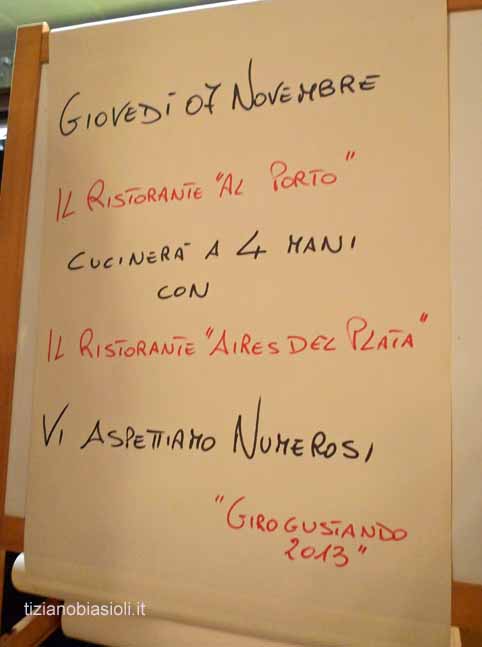 GIOVEDÌ 07 NOVEMBRE
IL RISTORANTE "AL PORTO"
CUCINERÀ A 4 MANI
CON
IL RISTORANTE "AIRES DEL PLATA"
VI ASPETTIAMO NUMEROSI
"GIROGUSTANDO
2013"
tizianobiasioli.it